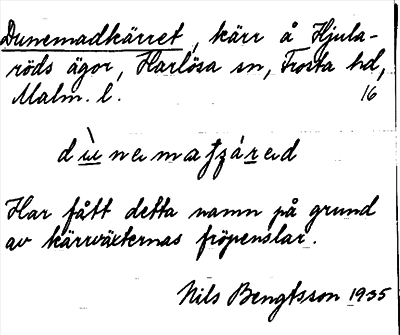 Dunemadkärret, kärr å Hjula-
röds ägor, Harlösa sn, Frosta hd,
Malm. l. 16
Har fått detta namn på grund
av kärrväxternas fröpenslar.
Nils Bengtsson 1935